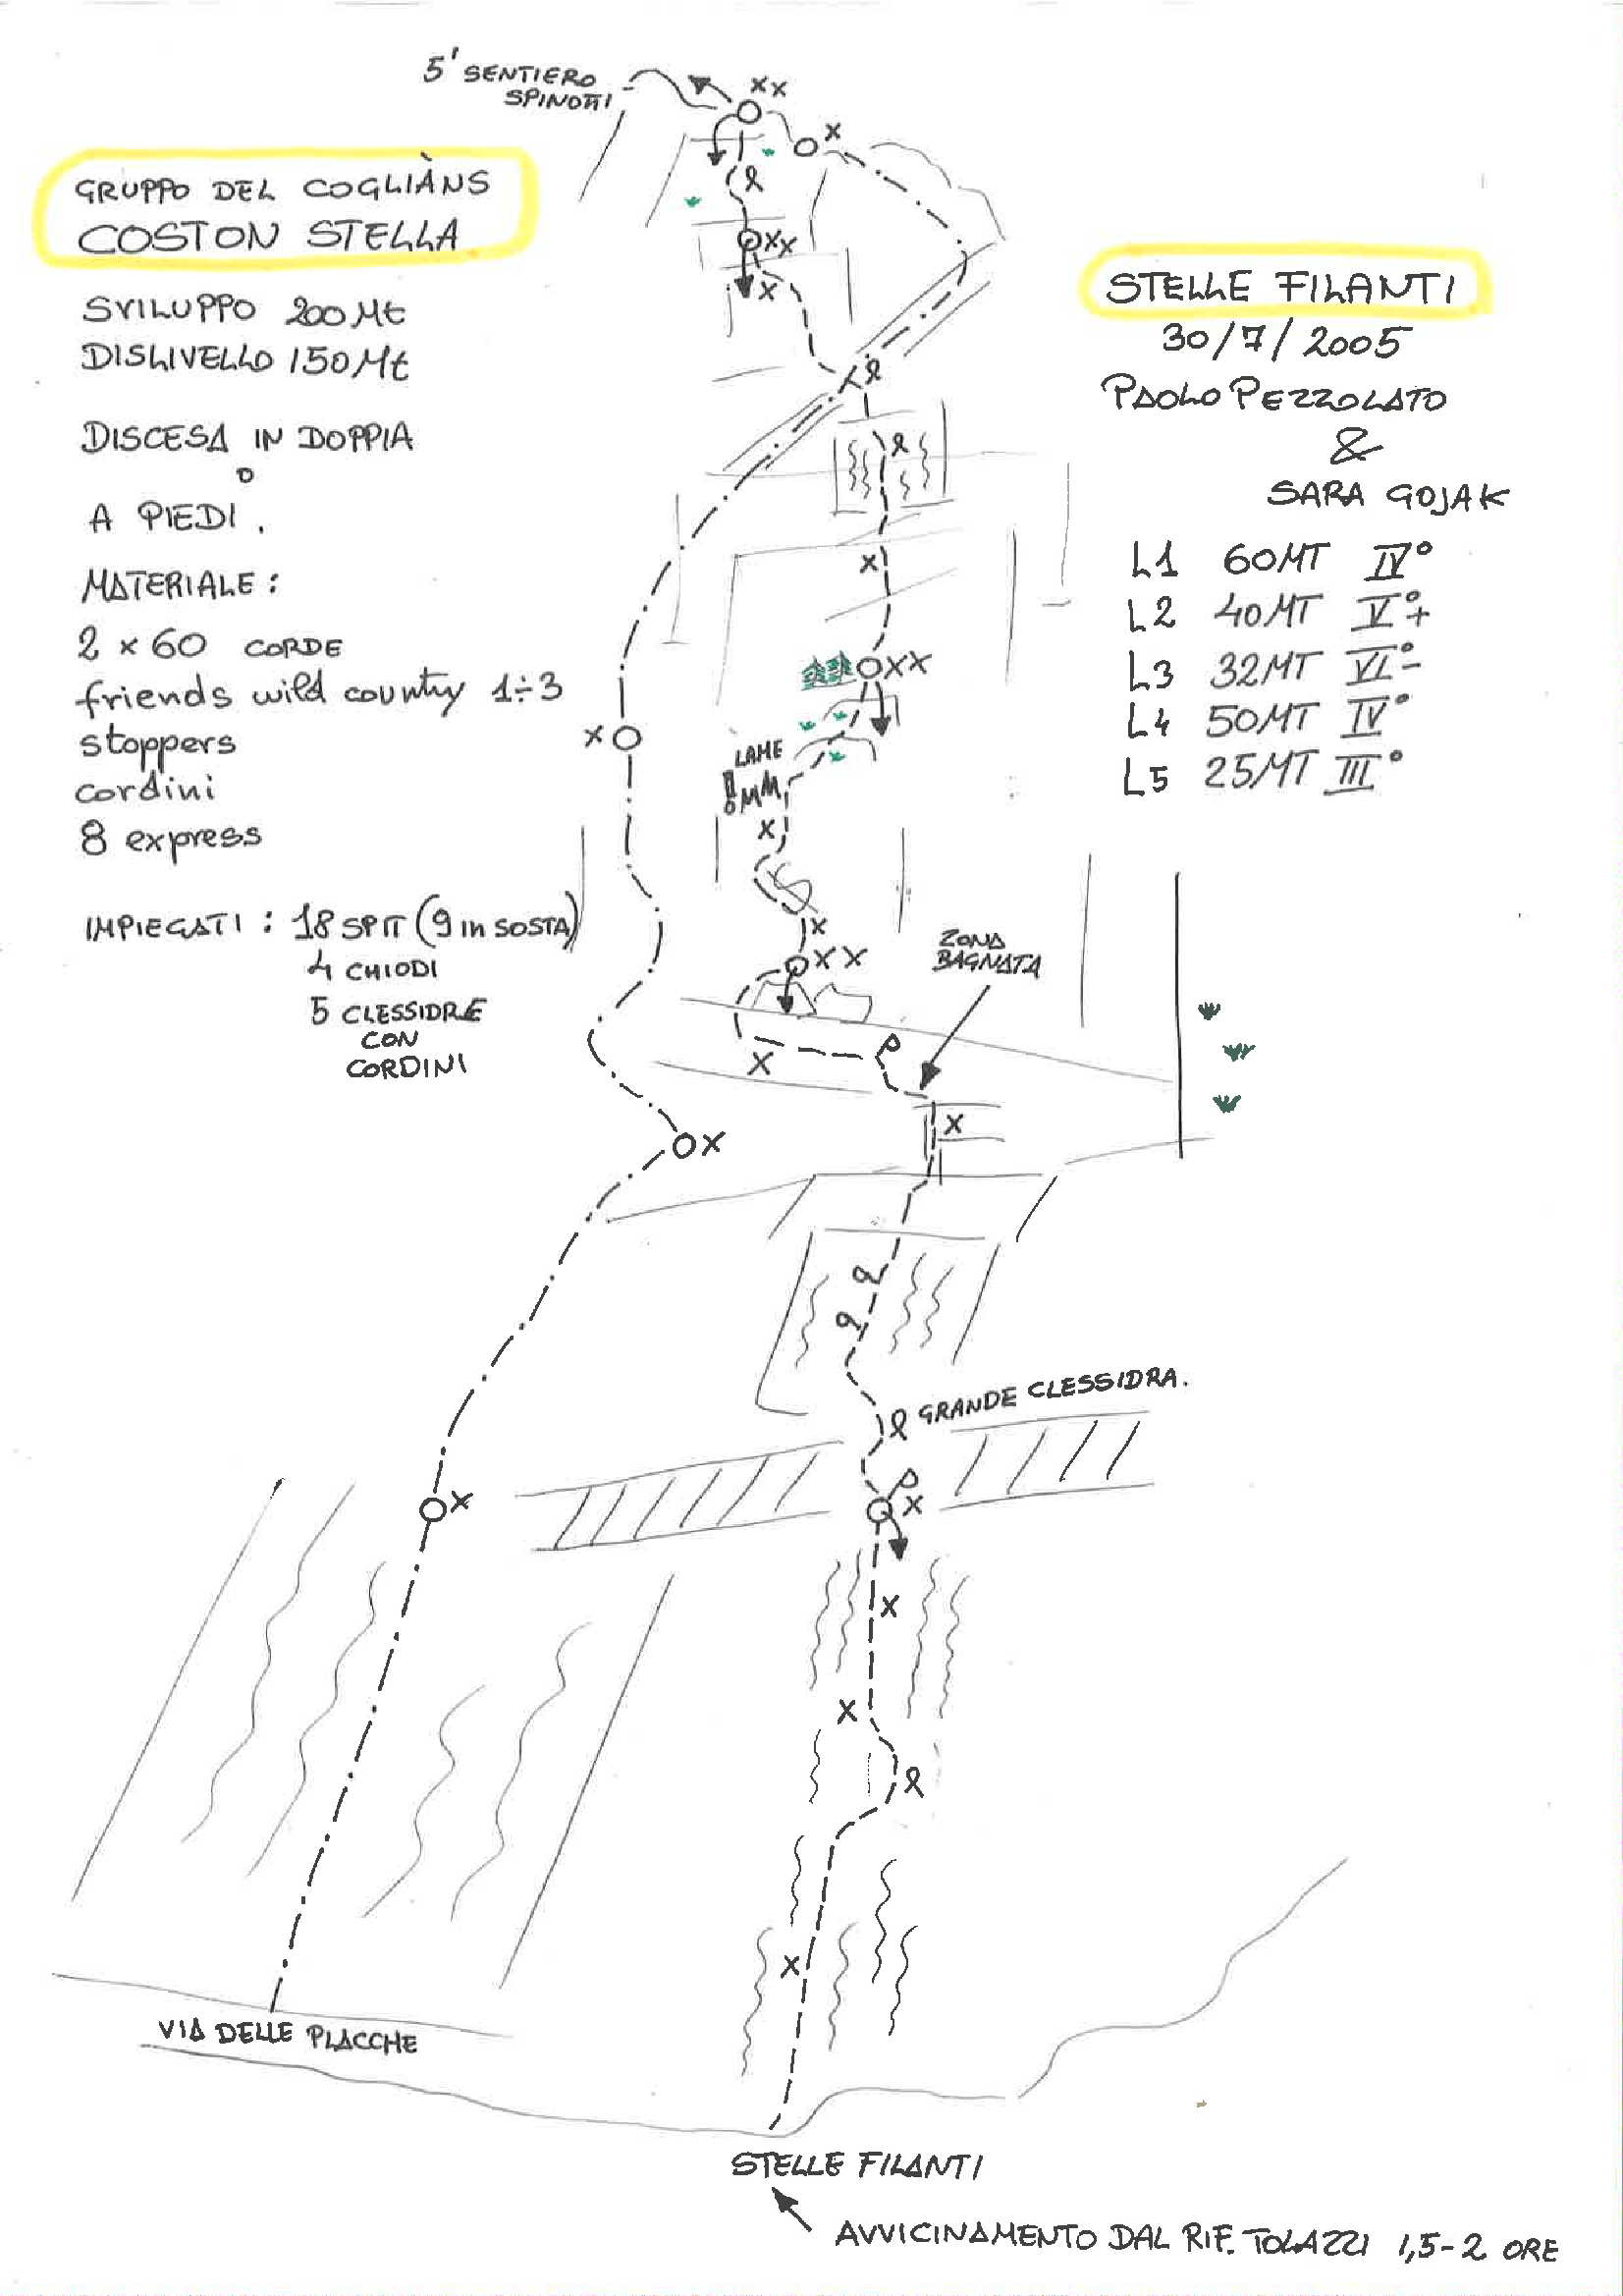 5' SENTIERO
SPINOTTI
XX
X
GRUPPO DEL COGLIÀNS
COSTON STELLA
SVILUPPO 200 Mt
DISLIVELLO 150 Mt
DISCESA IN DOPPIA
O
A PIEDI.
MATERIALE:
2 × 60 CORDE
friends wild country 1÷3
stoppers
cordini
8 express
IMPIEGATI: 18 SPIT (9 in SOSTA)
4 CHIODI
5 CLESSIDRE
CON
CORDINI
STELLE FILANTI
30/7/2005
PAOLO PEZZOLATO
&
SARA GOJAK
L1 60MT IV°
L2 40MT V°+
L3 32MT VI°-
L4 50MT IV°
L5 25MT III°
XX
X
X
XX
X
LAME
!
X
X
XX
ZONA
BAGNATA
X
X
X
GRANDE CLESSIDRA.
X
X
X
X
X
VIA DELLE PLACCHE
STELLE FILANTI
AVVICINAMENTO DAL RIF. TOLAZZI 1,5-2 ORE